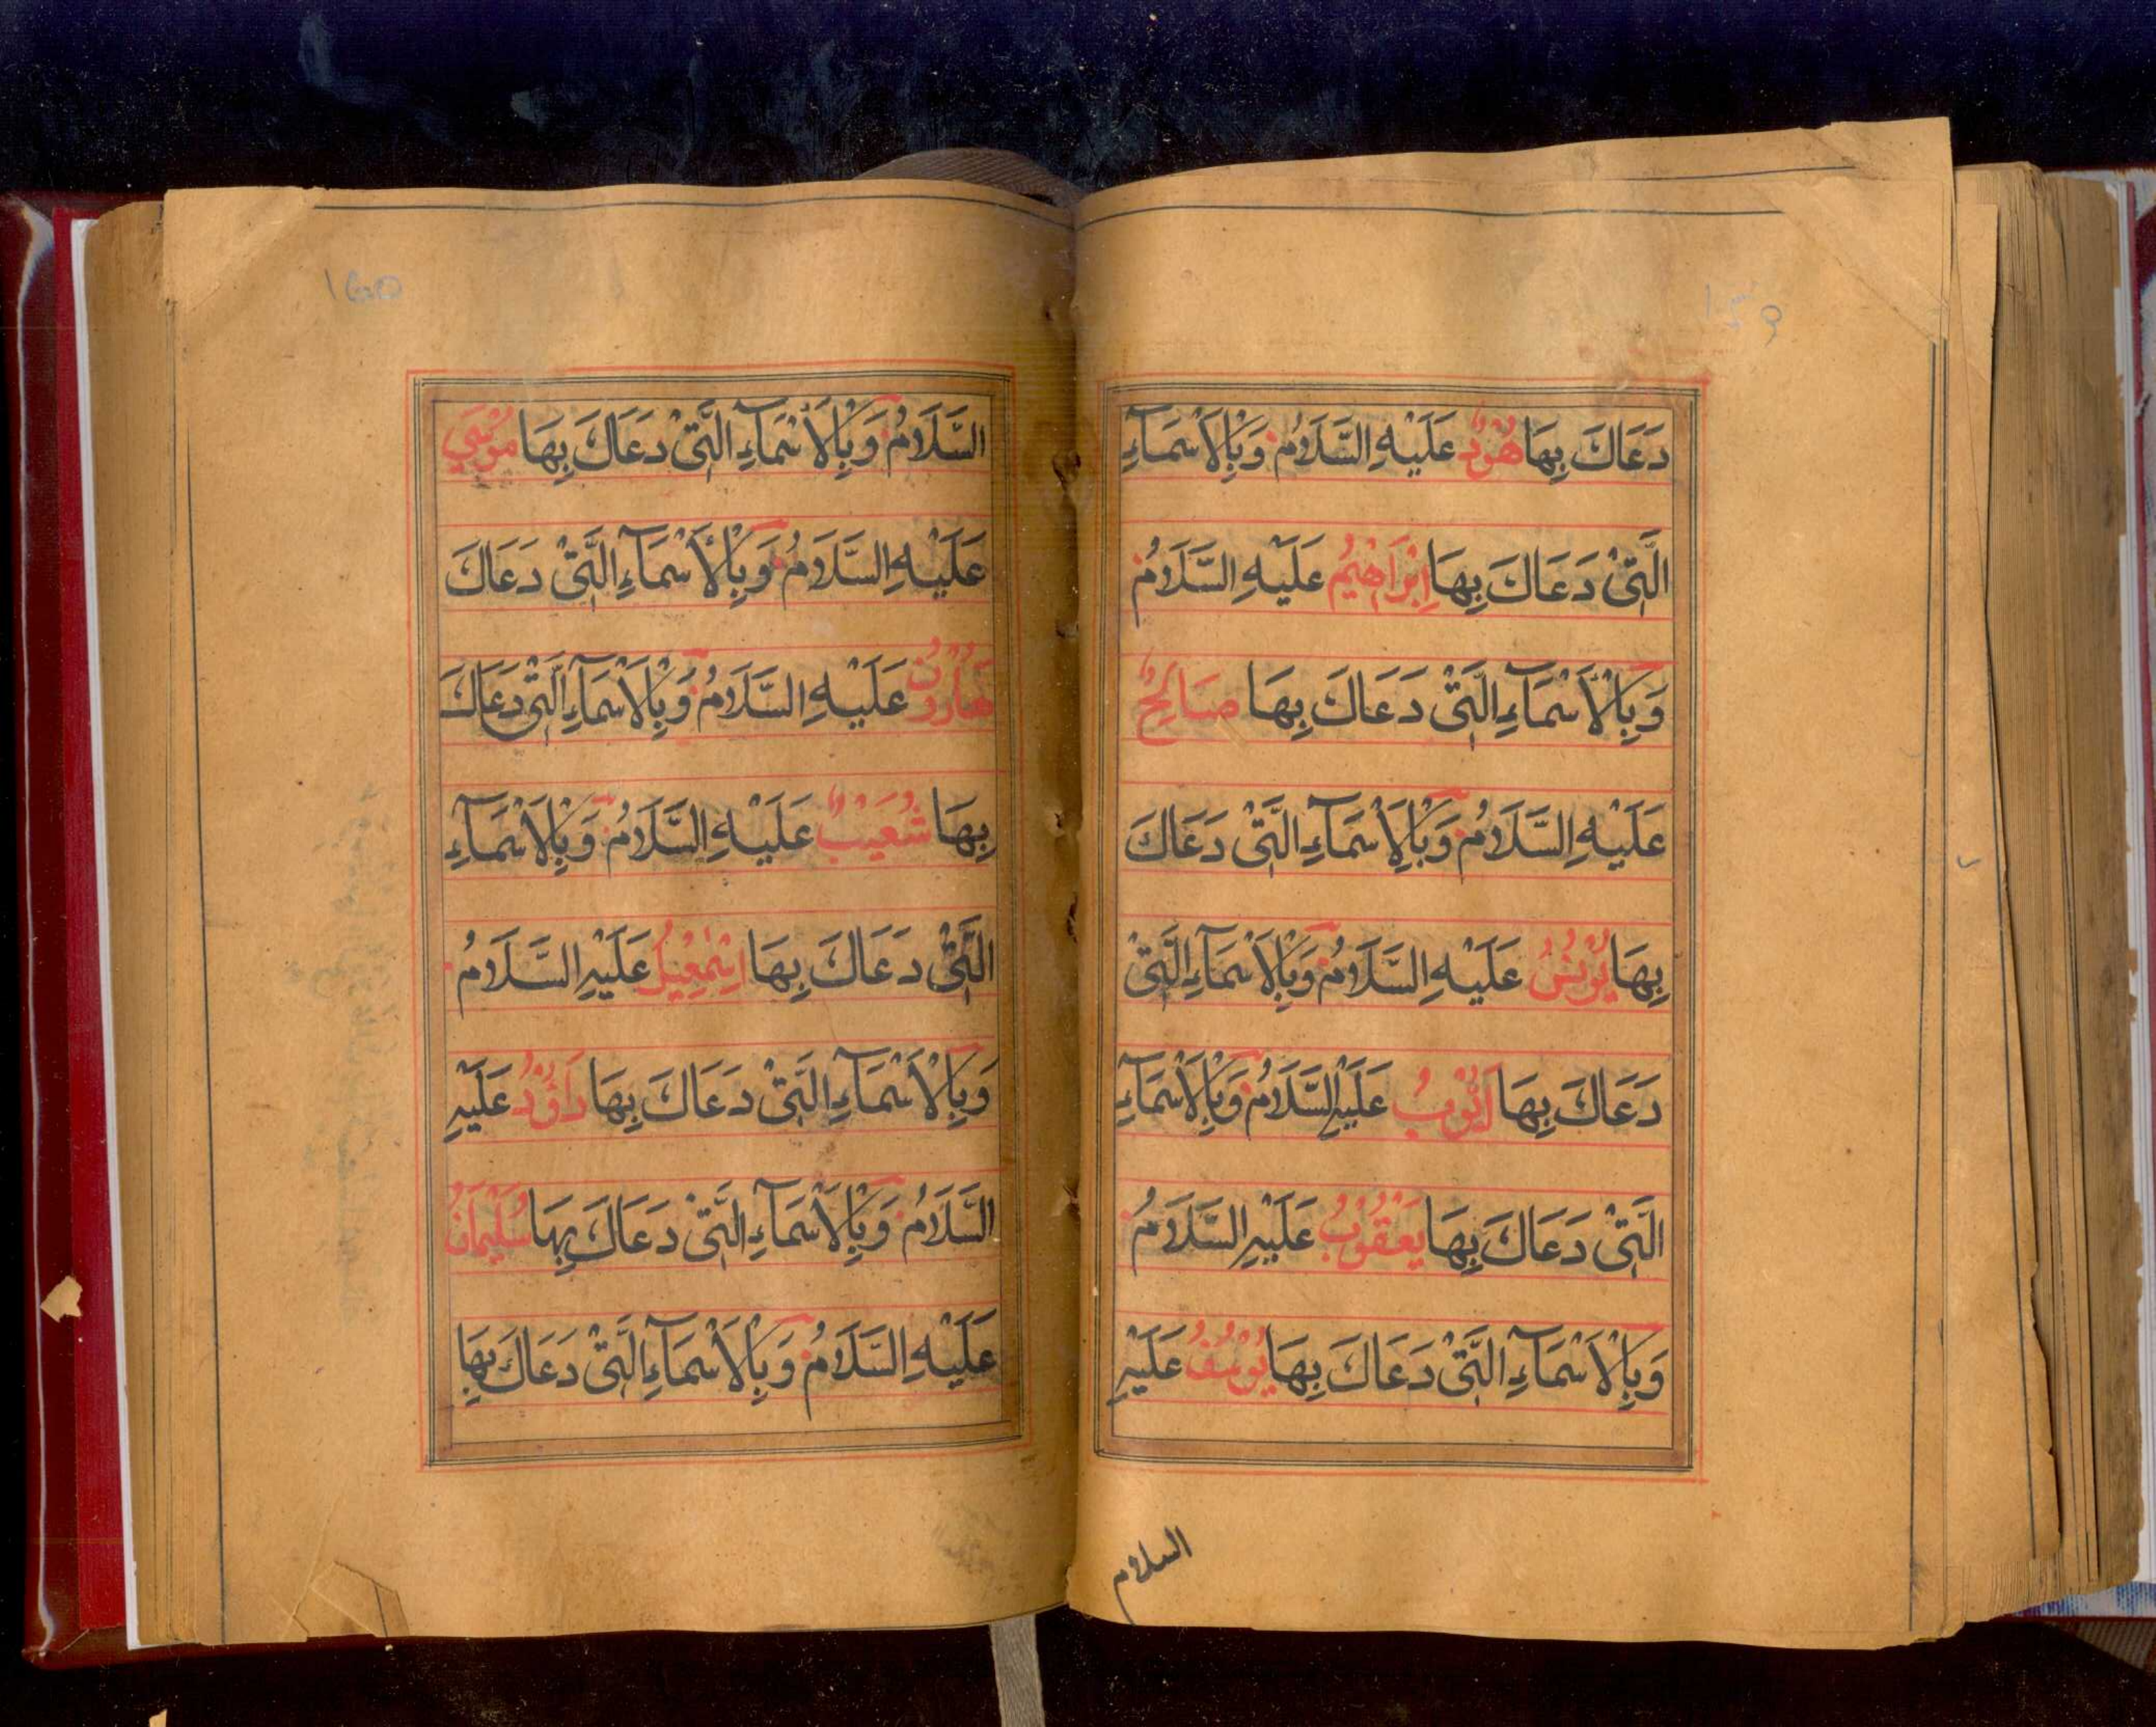 159
دَعَاكَ بِهَا هُوْدٌ عَلَيْهِ السَّلَامُ وَبِالْاَسْمَآءِ
الَّتِيْ دَعَاكَ بِهَا اِبْرَاهِيْمُ عَلَيْهِ السَّلَامُ
وَبِالْاَسْمَآءِ الَّتِيْ دَعَاكَ بِهَا صَالِحٌ
عَلَيْهِ السَّلَامُ وَبِالْاَسْمَآءِ الَّتِيْ دَعَاكَ
بِهَا يُوْنُسُ عَلَيْهِ السَّلَامُ وَبِالْاَسْمَآءِ الَّتِيْ
دَعَاكَ بِهَا اَيُّوْبُ عَلَيْهِ السَّلَامُ وَبِالْاَسْمَآءِ
الَّتِيْ دَعَاكَ بِهَا يَعْقُوْبُ عَلَيْهِ السَّلَامُ
وَبِالْاَسْمَآءِ الَّتِيْ دَعَاكَ بِهَا يُوْسُفُ عَلَيْهِ
السلام
160
السَّلَامُ وَبِالْاَسْمَآءِ الَّتِيْ دَعَاكَ بِهَا مُوْسٰي
عَلَيْهِ السَّلَامُ وَبِالْاَسْمَآءِ الَّتِيْ دَعَاكَ
هَارُوْنُ عَلَيْهِ السَّلَامُ وَبِالْاَسْمَآءِ الَّتِيْ دَعَاكَ
بِهَا شُعَيْبٌ عَلَيْهِ السَّلَامُ وَبِالْاَسْمَآءِ
الَّتِيْ دَعَاكَ بِهَا اِسْمٰعِيْلُ عَلَيْهِ السَّلَامُ
وَبِالْاَسْمَآءِ الَّتِيْ دَعَاكَ بِهَا دَاوٗدُ عَلَيْهِ
السَّلَامُ وَبِالْاَسْمَآءِ الَّتِيْ دَعَاكَ بِهَا سُلَيْمَانُ
عَلَيْهِ السَّلَامُ وَبِالْاَسْمَآءِ الَّتِيْ دَعَاكَ بِهَا